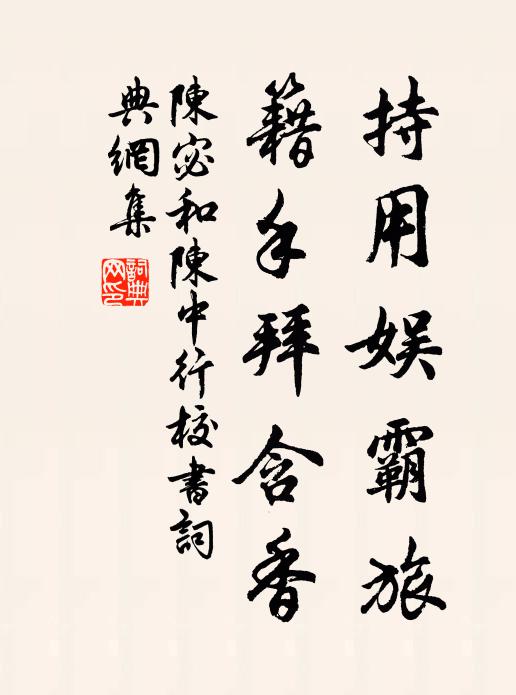 持用娱霸旅
籍手拜含香
陳宓和陳中行校書詞
典網集
詞典
网印